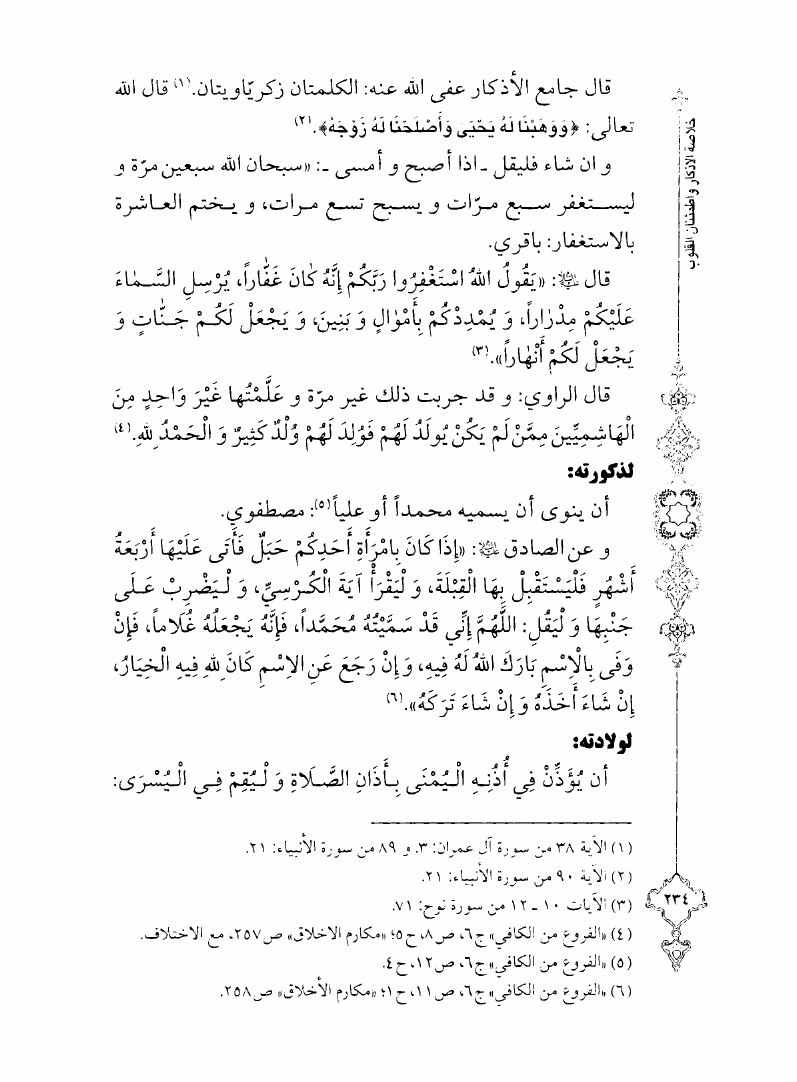 خلاصة الاذكار واطمئنان القلوب
قال جامع الأذكار عفى الله عنه: الكلمتان زكريّاويتان.(١) قال الله
تعالى: ﴿وَوَهَبْنَا لَهُ يَحْيَى وَأَصْلَحْنَا لَهُ زَوْجَهُ﴾.(٢)
و ان شاء فليقل ـ اذا أصبح و أمسى ـ: «سبحان الله سبعين مرّة و
ليستغفر سبع مرّات و يسبح تسع مرات، و يختم العاشرة
بالاستغفار: باقري.
قال ﷺ: «يَقُولُ اللهُ اسْتَغْفِرُوا رَبَّكُمْ إِنَّهُ كَانَ غَفَّاراً، يُرْسِلِ السَّمَاءَ
عَلَيْكُمْ مِدْرَاراً، وَ يُمْدِدْكُمْ بِأَمْوَالٍ وَ بَنِينَ، وَ يَجْعَلْ لَكُمْ جَنَّاتٍ وَ
يَجْعَلْ لَكُمْ أَنْهَاراً».(٣)
قال الراوي: و قد جربت ذلك غير مرّة و عَلَّمْتُها غَيْرَ وَاحِدٍ مِنَ
الْهَاشِمِيِّينَ مِمَّنْ لَمْ يَكُنْ يُولَدُ لَهُمْ فَوُلِدَ لَهُمْ وُلْدٌ كَثِيرٌ وَ الْحَمْدُ لِلّٰهِ.(٤)
لذكورته:
أن ينوى أن يسميه محمداً أو علياً(٥): مصطفوي.
و عن الصادق: «إِذَا كَانَ بِامْرَأَةِ أَحَدِكُمْ حَبَلٌ فَأَتَى عَلَيْهَا أَرْبَعَةُ
أَشْهُرٍ فَلْيَسْتَقْبِلْ بِهَا الْقِبْلَةَ، وَ لْيَقْرَأْ آيَةَ الْكُرْسِيِّ، وَ لْيَضْرِبْ عَلَى
جَنْبِهَا وَ لْيَقُلِ: اللَّهُمَّ إِنِّي قَدْ سَمَّيْتُهُ مُحَمَّداً، فَإِنَّهُ يَجْعَلُهُ غُلَاماً، فَإِنْ
وَفَى بِالْاِسْمِ بَارَكَ اللهُ لَهُ فِيهِ، وَ إِنْ رَجَعَ عَنِ الاِسْمِ كَانَ لِلّٰهِ فِيهِ الْخِيَارُ،
إِنْ شَاءَ أَخَذَهُ وَ إِنْ شَاءَ تَرَكَهُ».(٦)
لولادته:
أن يُؤَذِّنْ فِي أُذُنِهِ الْيُمْنَى بِأَذَانِ الصَّلَاةِ وَ لْيُقِمْ فِي الْيُسْرَى:
(١) الآية ٣٨ من سورة آل عمران: ٣. و ٨٩ من سورة الأنبياء: ٢١.
(٢) الآية ٩٠ من سورة الأنبياء: ٢١.
(٣) الآيات ١٠ ـ ١٢ من سورة نوح: ٧١.
(٤) «الفروع من الكافي» ج٦، ص٨، ح٥؛ «مكارم الاخلاق» ص٢٥٧، مع الاختلاف.
(٥) «الفروع من الكافي» ج٦، ص١٢، ح٤.
(٦) «الفروع من الكافي» ج٦، ص١١، ح١؛ «مكارم الأخلاق» ص٢٥٨.
٢٣٤